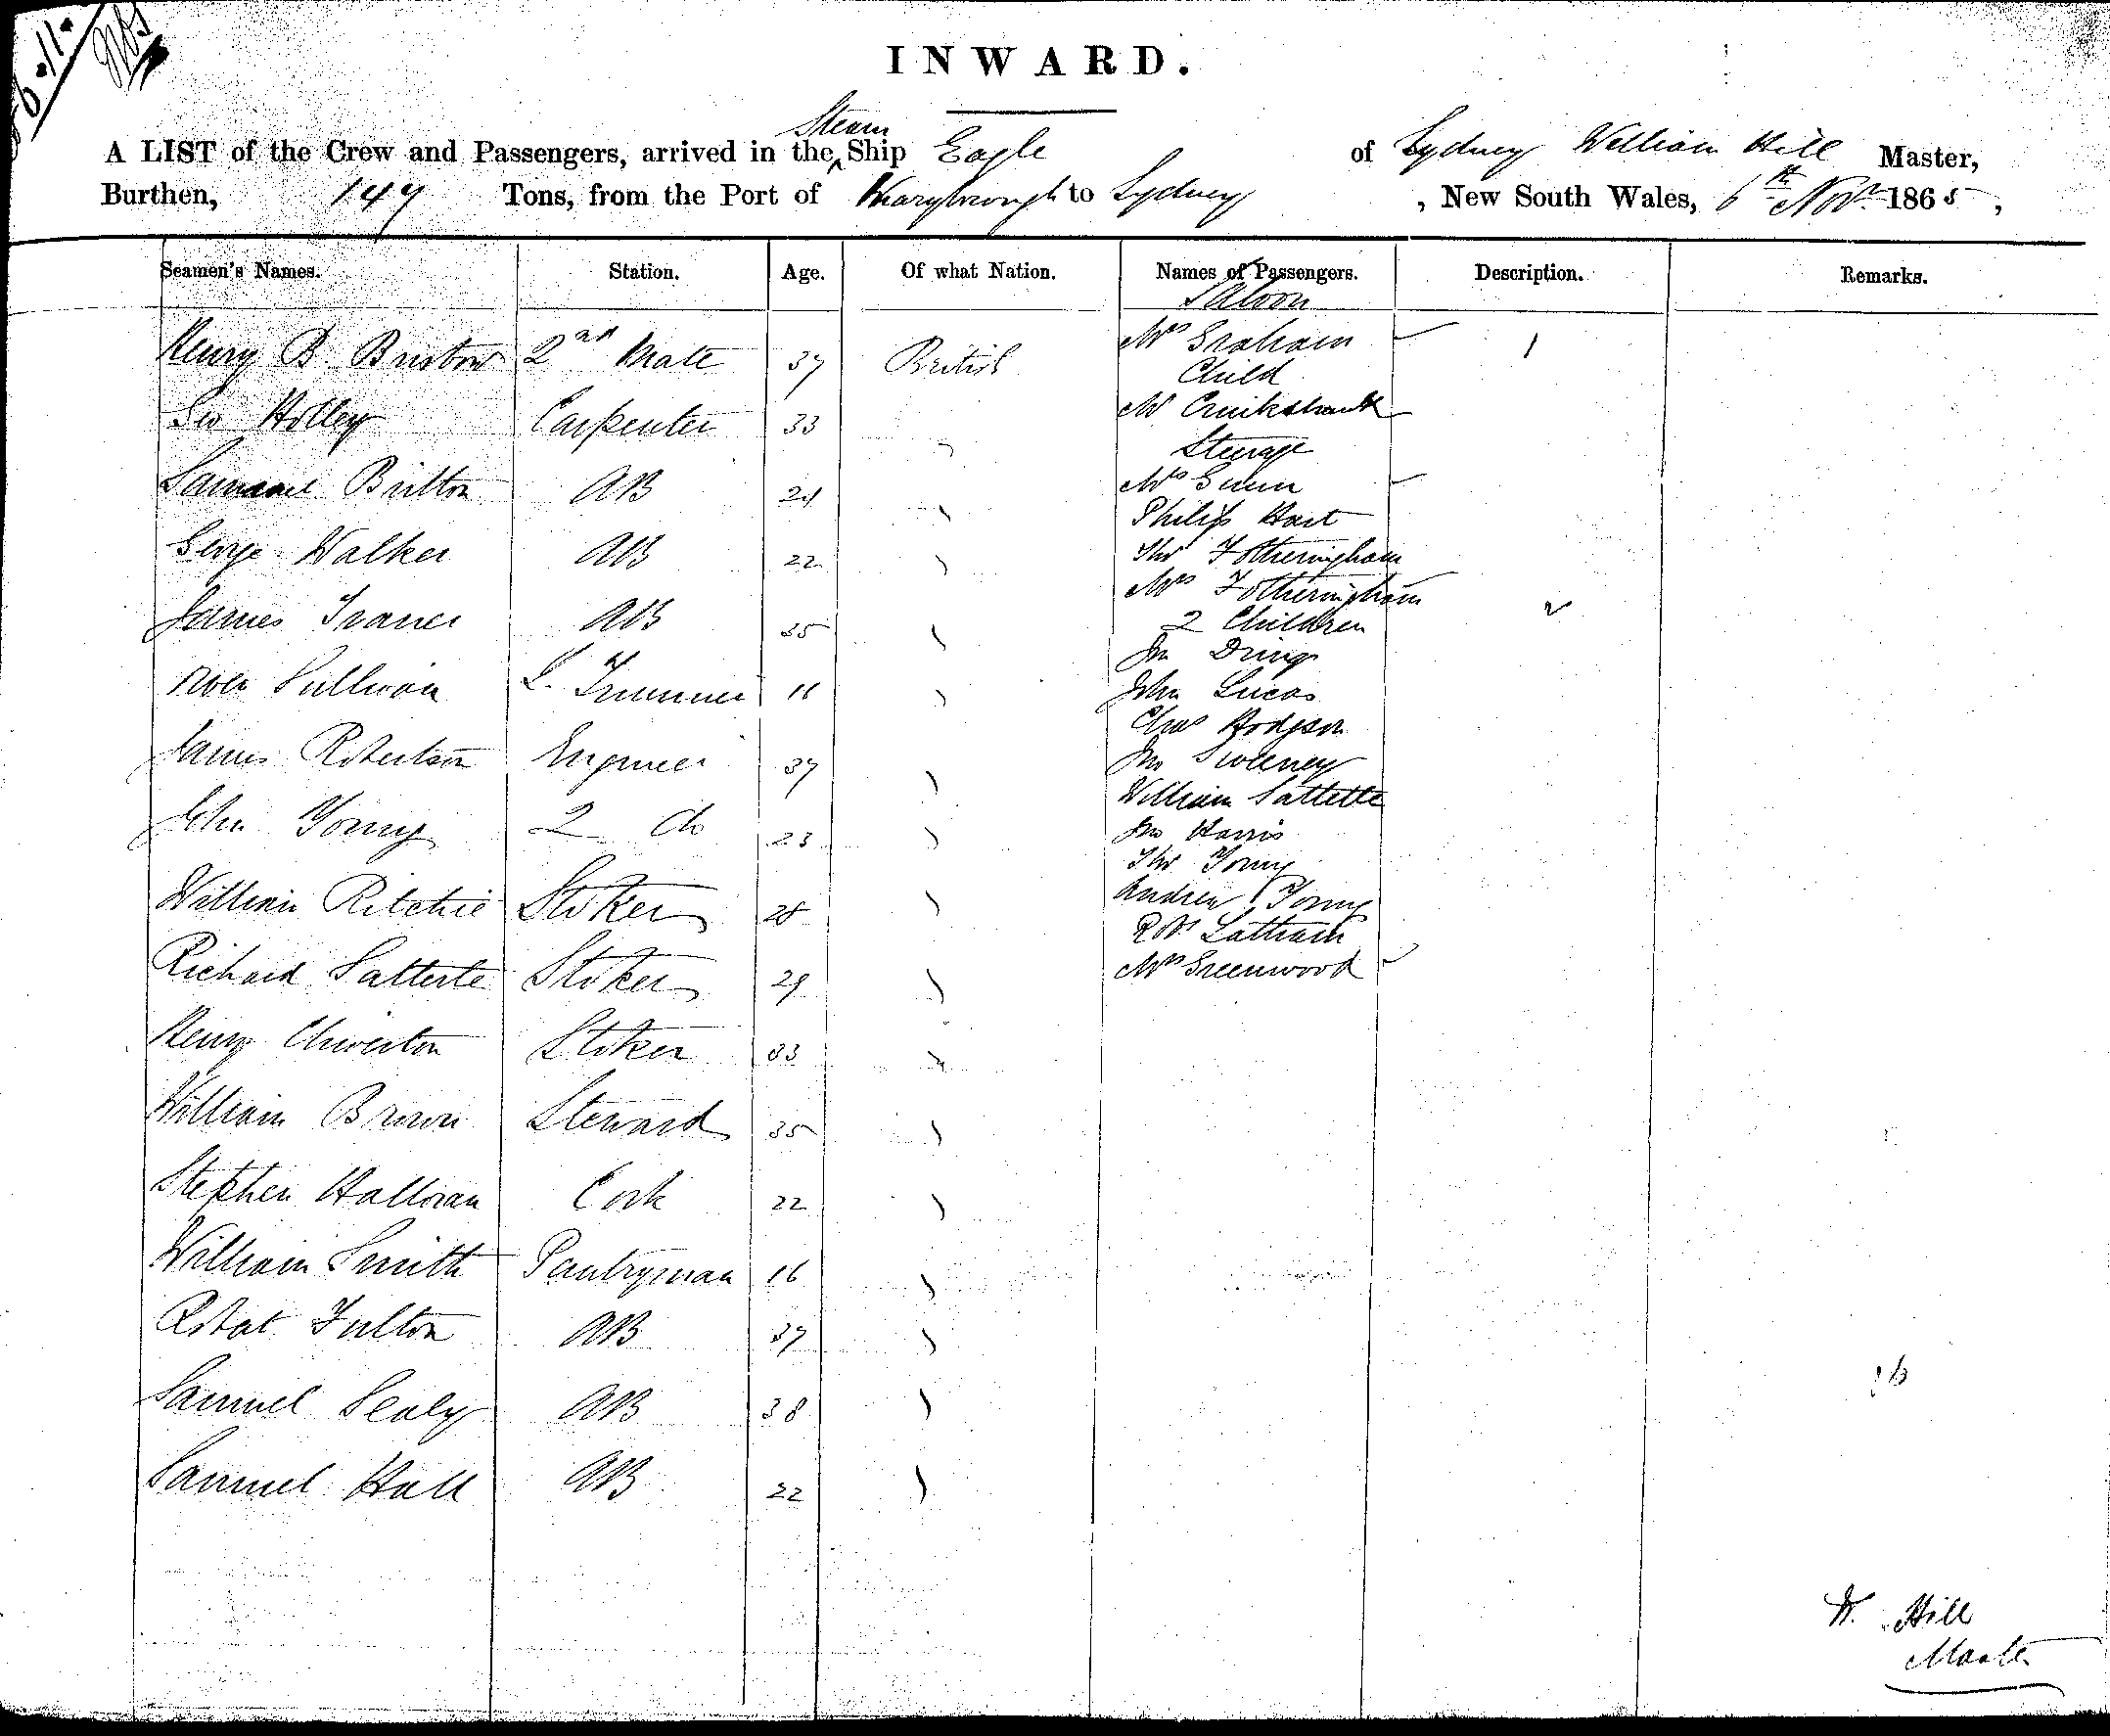 INWARD.
A LIST of the Crew and Passengers, arrived in the Steam Ship Eagle of Sydney William Hill Master,
Burthen, 149 Tons, from the Port of Maryborough to Sydney, New South Wales, 6th Novr 1865,
Seamen's Names. Station. Age. Of what Nation. Names of Passengers. Description. Remarks.
Saloon
Henry B. Bristow 2nd Mate 37 British
Geo Holley Carpenter 33 "
Samuel Britton AB 24 "
George Walker AB 22 "
James AB 35 "
Sullivan Trimmer 16 "
James Robertson Engineer 37 "
John Young 2 do 23 "
William Ritchie Stoker 28 "
Richard Stoker 29 "
Henry Chiverton Stoker 33 "
William Brown Steward 35 "
Stephen Halloran Cook 22 "
William Smith Pantryman 16 "
Robat Fulton AB 37 "
Samuel Sealy AB 38 "
Samuel Hall AB 22 "
Mrs Graham 1
Child
Mr Cruikshank
Steerage
Mrs Gunn
Philip Hart
Thos Fotheringham
Mrs Fotheringham
2 Children 2
Jno Dring
John Lucas
Chas Hodgson
Jno Sweeney
William
Jno Harris
Thos Young
Andrew Young
Latham
Mrs Greenwood
W. Hill
Master